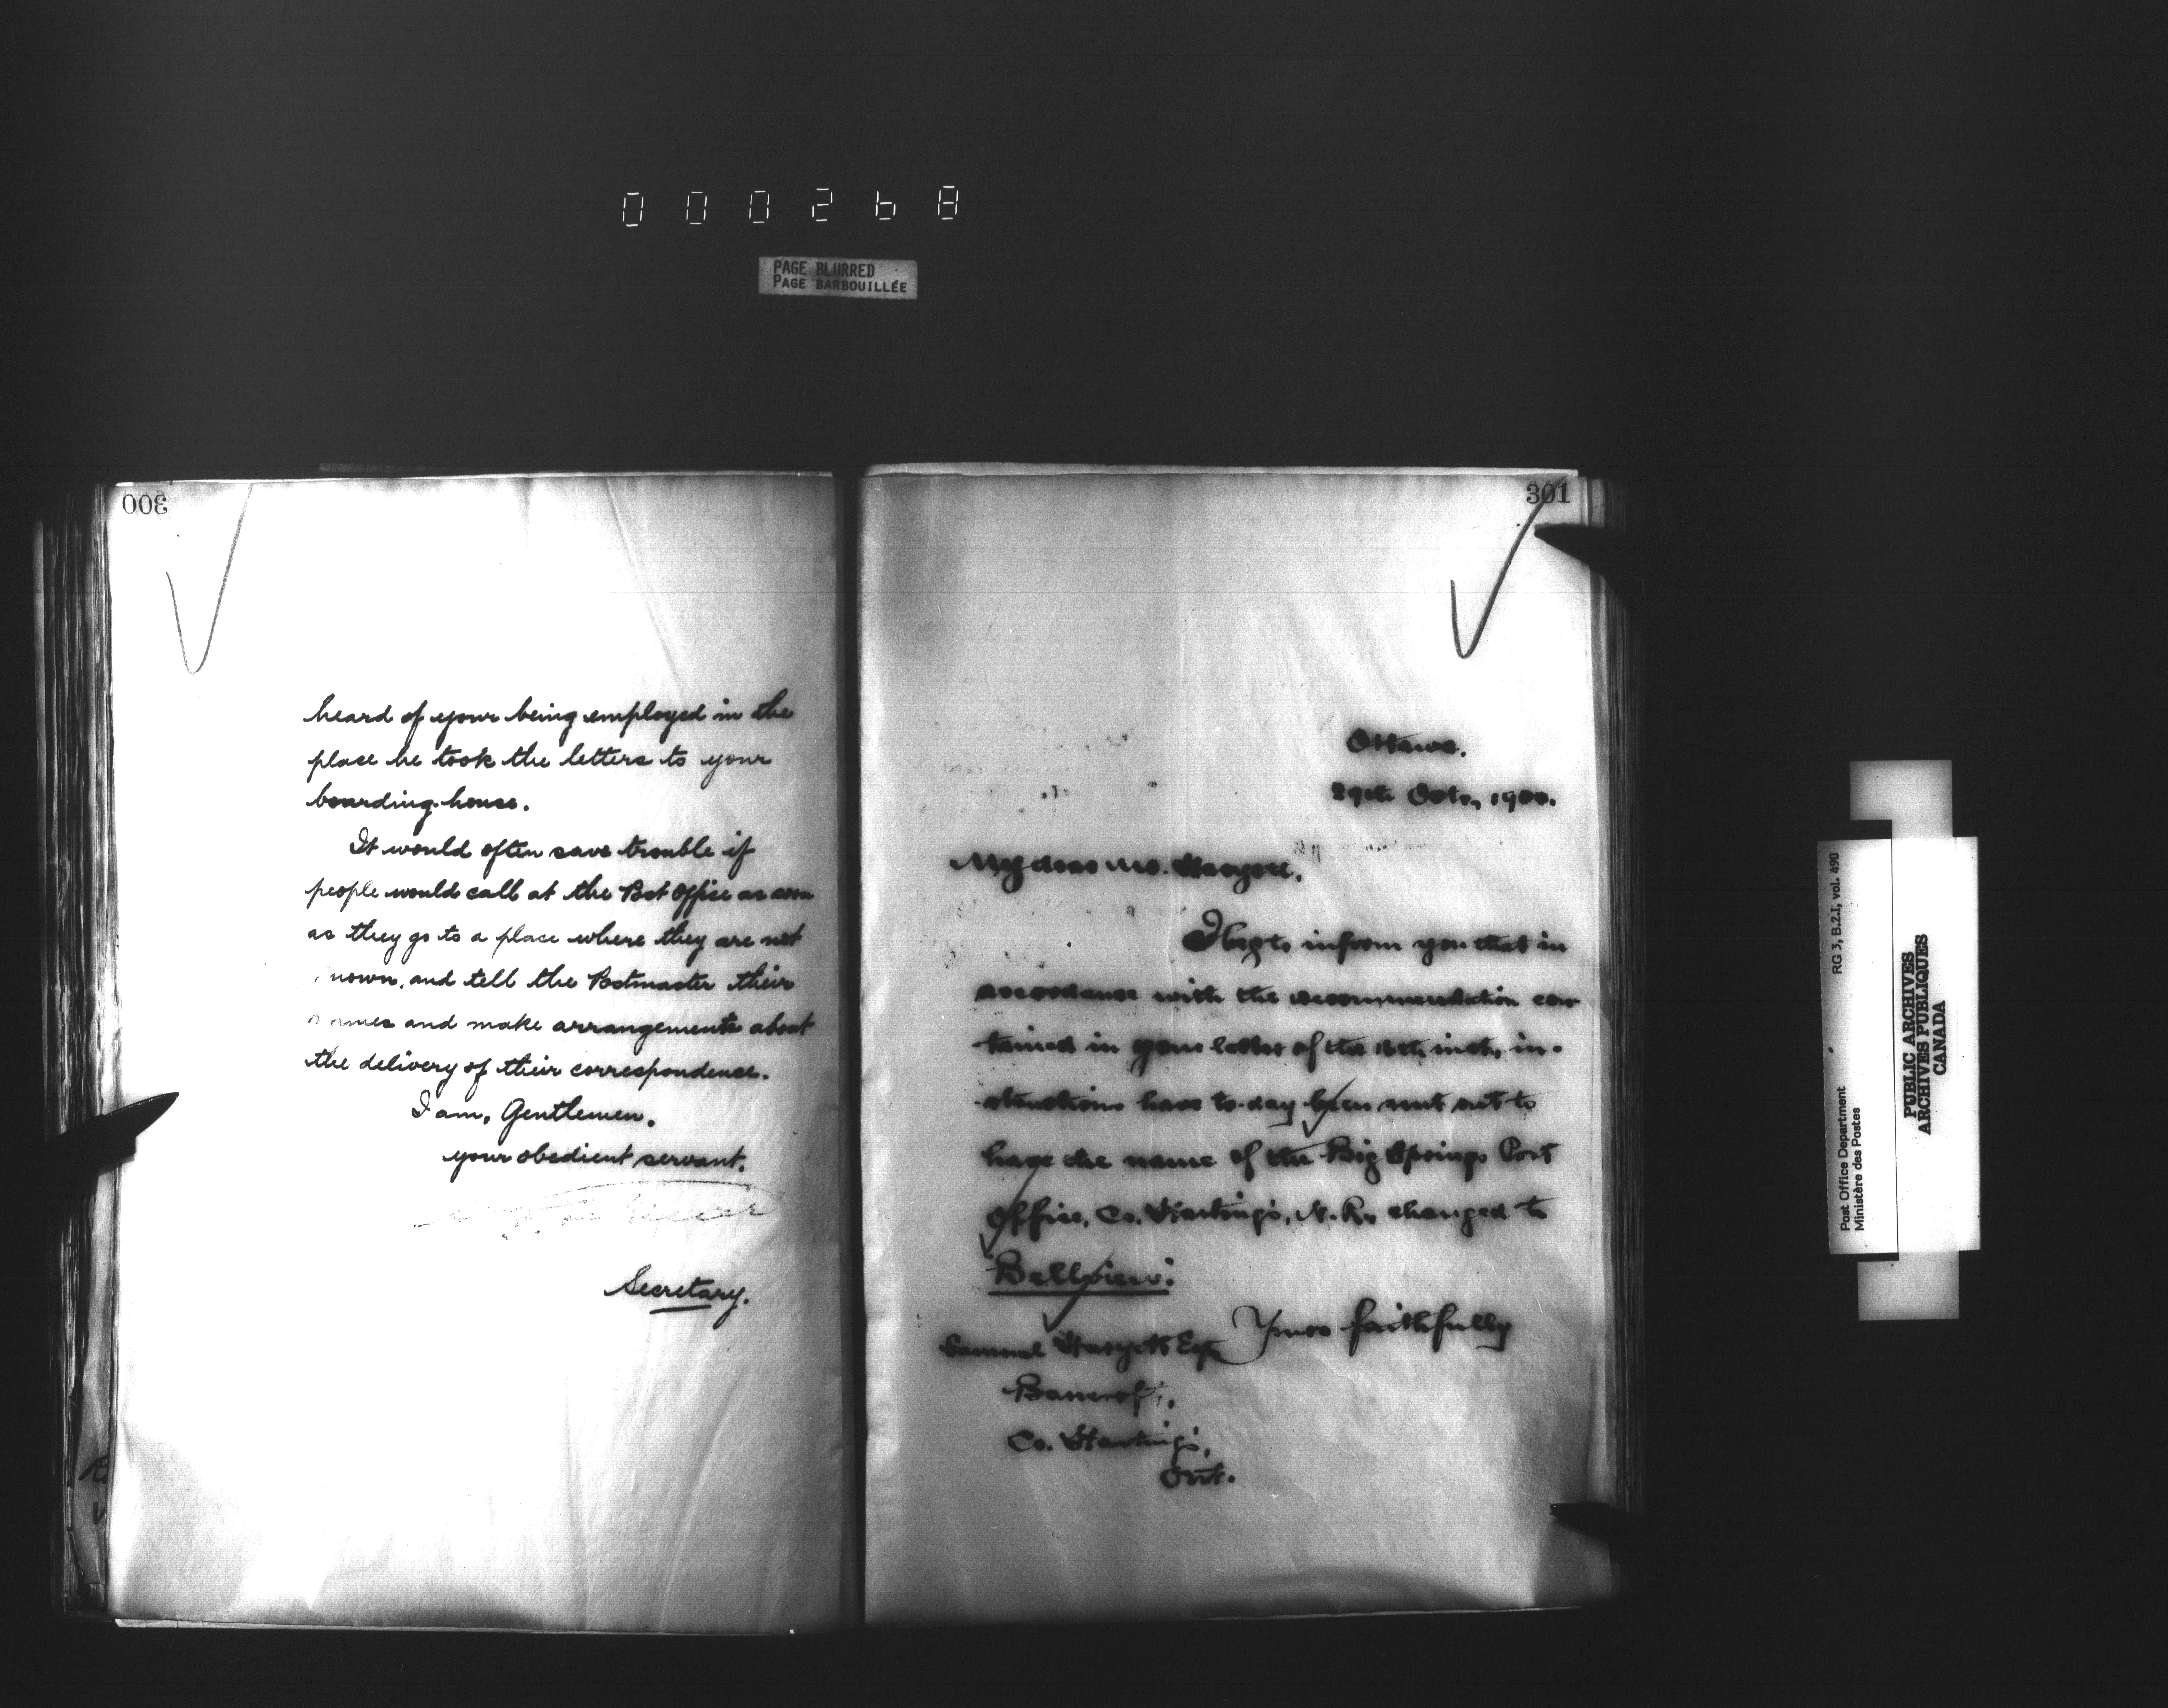 000268
PAGE BLURRED
PAGE BARBOUILLÉE
300
heard of your being employed in the
place he took the letters to your
boarding-house.
It would often save trouble if
people would call at the Post Office as soon
as they go to a place where they are not
nown, and tell the Postmaster their
names and make arrangements about
the delivery of their correspondence.
I am, Gentlemen.
your obedient servant.
Secretary.
301
Ottawa.
29th Octr., 1900.
My dear Mr.
I beg to inform you that in
accordance with the recommendation con-
tained in your letter of the inst., in-
structions have to-day been sent out to
have the name of the Big Springs Post
Office, Co. Hastings, N.R., changed to
Bellview.
Yours faithfully
Samuel Esq.
Bancroft,
Co. Hastings,
Ont.
RG 3, B.2.I, vol. 490
Post Office Department
Ministère des Postes
PUBLIC ARCHIVES
ARCHIVES PUBLIQUES
CANADA